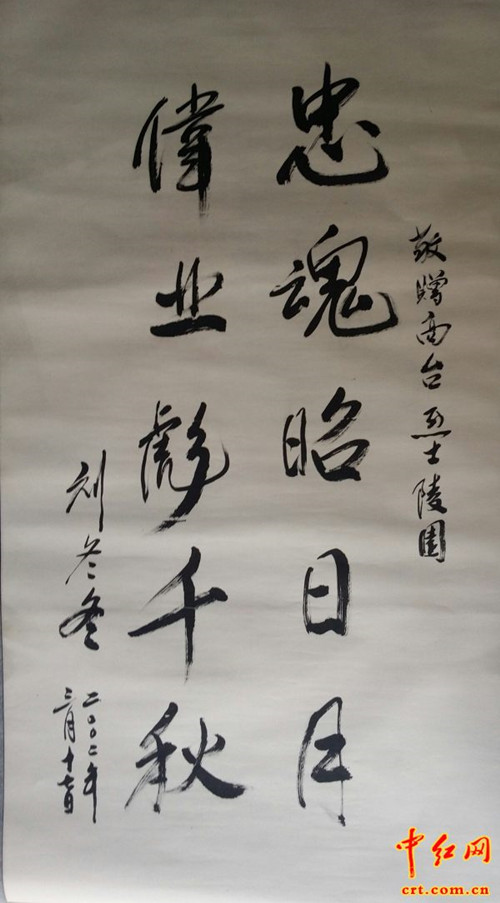 敬赠高台烈士陵园
忠魂昭日月
偉业彪千秋
刘冬冬
二〇〇二年
三月十六日
中红网
crt.com.cn